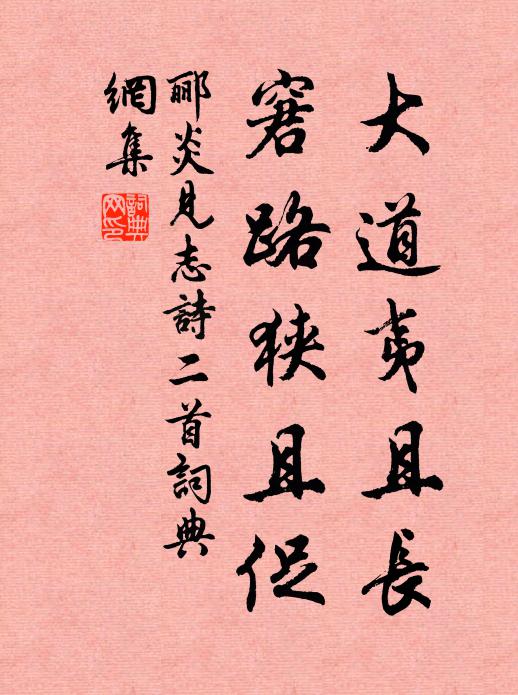 大道夷且長
窘路狹且促
酈炎見志詩二首詞典
網集
詞典
网印